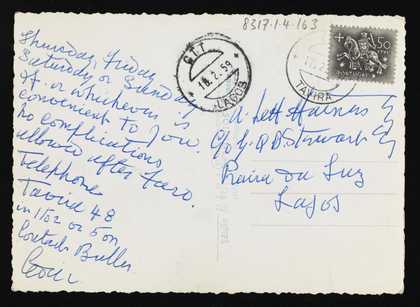 8317.1.4.163
Thursday, Friday
Saturday or Sunday
If. or whichever is
convenient to you.
No complications
allowed after Faro.
Telephone
Tavira 48
in 1/52 or 5 on
CTT
18.2.59
LAGOS
TAVIRA
1$50
PORTUGAL
A. Lett Haines Esq
C/o J. P. D. Stewart Esq
Praia da Luz
Lagos